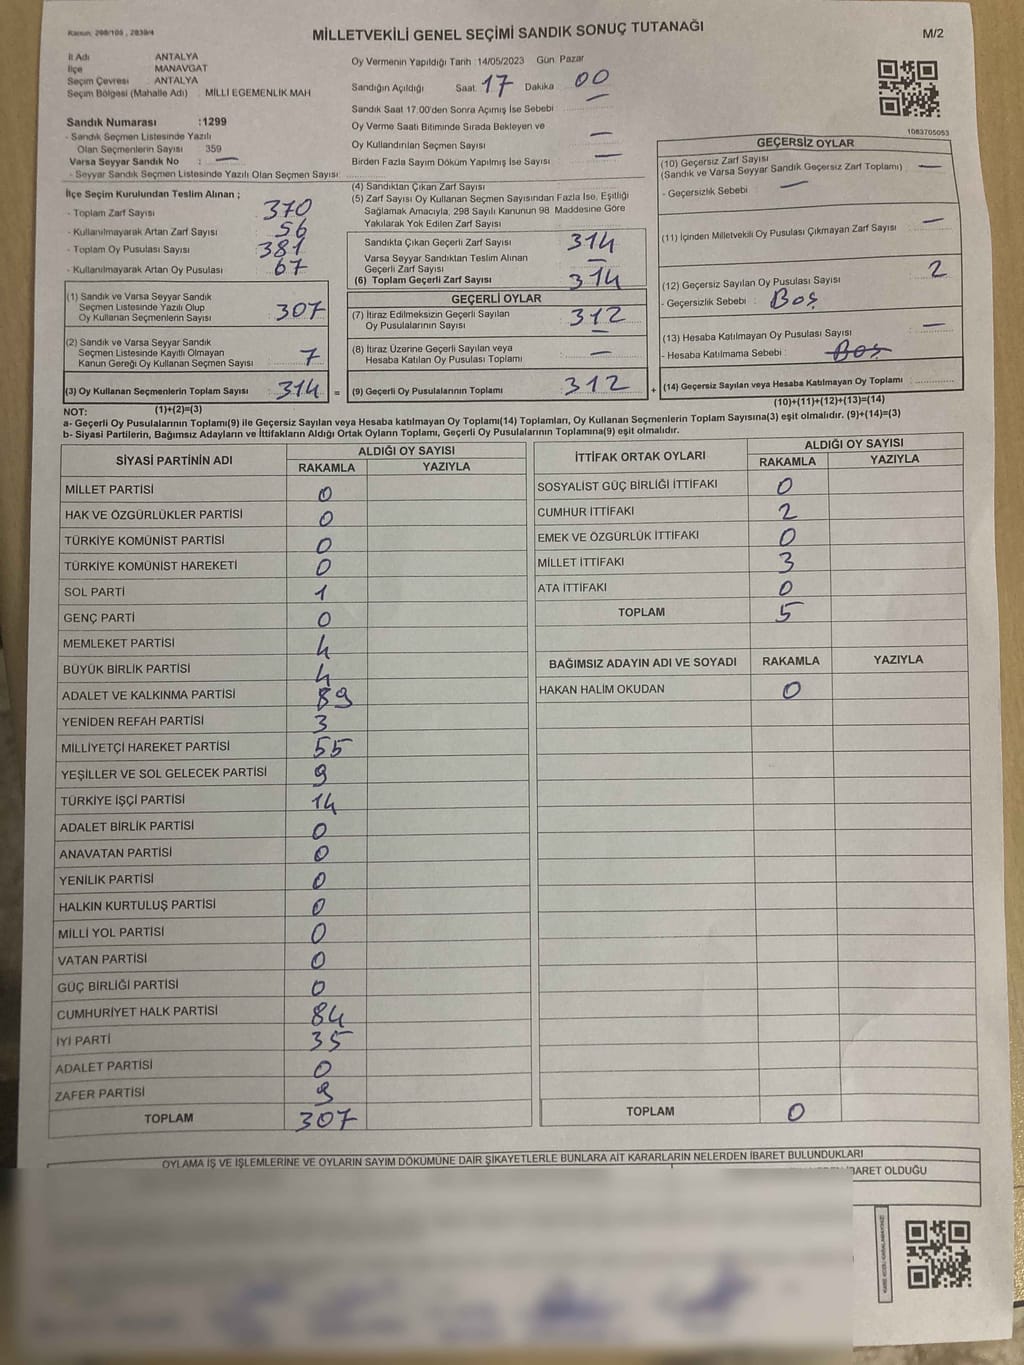 Kanun: 298/105 , 2839/4
MİLLETVEKİLİ GENEL SEÇİMİ SANDIK SONUÇ TUTANAĞI
M/2
İl Adı ANTALYA
İlçe MANAVGAT
Seçim Çevresi ANTALYA
Seçim Bölgesi (Mahalle Adı) MİLLİ EGEMENLİK MAH
Oy Vermenin Yapıldığı Tarih :14/05/2023 Gün: Pazar
Sandığın Açıldığı Saat: 17 Dakika 00
Sandık Saat 17:00'den Sonra Açımış İse Sebebi —
Oy Verme Saati Bitiminde Sırada Bekleyen ve
Oy Kullandırılan Seçmen Sayısı —
Birden Fazla Sayım Döküm Yapılmış İse Sayısı —
Sandık Numarası :1299
- Sandık Seçmen Listesinde Yazılı
Olan Seçmenlerin Sayısı 359
Varsa Seyyar Sandık No : —
- Seyyar Sandık Seçmen Listesinde Yazılı Olan Seçmen Sayısı:
1083705053
İlçe Seçim Kurulundan Teslim Alınan ;
- Toplam Zarf Sayısı 370
- Kullanılmayarak Artan Zarf Sayısı 56
- Toplam Oy Pusulası Sayısı 381
- Kullanılmayarak Artan Oy Pusulası 67
(1) Sandık ve Varsa Seyyar Sandık
Seçmen Listesinde Yazılı Olup
Oy Kullanan Seçmenlerin Sayısı 307
(2) Sandık ve Varsa Seyyar Sandık
Seçmen Listesinde Kayıtlı Olmayan
Kanun Gereği Oy Kullanan Seçmen Sayısı 7
(3) Oy Kullanan Seçmenlerin Toplam Sayısı 314 =
(1)+(2)=(3)
(4) Sandıktan Çıkan Zarf Sayısı
(5) Zarf Sayısı Oy Kullanan Seçmen Sayısından Fazla İse, Eşitliği
Sağlamak Amacıyla, 298 Sayılı Kanunun 98 Maddesine Göre
Yakılarak Yok Edilen Zarf Sayısı
Sandıkta Çıkan Geçerli Zarf Sayısı 314
Varsa Seyyar Sandıktan Teslim Alınan
Geçerli Zarf Sayısı —
(6) Toplam Geçerli Zarf Sayısı 314
GEÇERLİ OYLAR
(7) İtiraz Edilmeksizin Geçerli Sayılan
Oy Pusulalarının Sayısı 312
(8) İtiraz Üzerine Geçerli Sayılan veya
Hesaba Katılan Oy Pusulası Toplamı —
(9) Geçerli Oy Pusulalarının Toplamı 312 +
GEÇERSİZ OYLAR
(10) Geçersiz Zarf Sayısı
(Sandık ve Varsa Seyyar Sandık Geçersiz Zarf Toplamı) —
- Geçersizlik Sebebi : —
(11) İçinden Milletvekili Oy Pusulası Çıkmayan Zarf Sayısı —
(12) Geçersiz Sayılan Oy Pusulası Sayısı 2
- Geçersizlik Sebebi : Boş
(13) Hesaba Katılmayan Oy Pusulası Sayısı —
- Hesaba Katılmama Sebebi : Boş
(14) Geçersiz Sayılan veya Hesaba Katılmayan Oy Toplamı :
(10)+(11)+(12)+(13)=(14)
NOT:
a- Geçerli Oy Pusulalarının Toplamı(9) ile Geçersiz Sayılan veya Hesaba katılmayan Oy Toplamı(14) Toplamları, Oy Kullanan Seçmenlerin Toplam Sayısına(3) eşit olmalıdır. (9)+(14)=(3)
b- Siyasi Partilerin, Bağımsız Adayların ve İttifakların Aldığı Ortak Oyların Toplamı, Geçerli Oy Pusulalarının Toplamına(9) eşit olmalıdır.
SİYASİ PARTİNİN ADI ALDIĞI OY SAYISI
RAKAMLA YAZIYLA
MİLLET PARTİSİ 0
HAK VE ÖZGÜRLÜKLER PARTİSİ 0
TÜRKİYE KOMÜNİST PARTİSİ 0
TÜRKİYE KOMÜNİST HAREKETİ 0
SOL PARTİ 1
GENÇ PARTİ 0
MEMLEKET PARTİSİ 4
BÜYÜK BİRLİK PARTİSİ 4
ADALET VE KALKINMA PARTİSİ 89
YENİDEN REFAH PARTİSİ 3
MİLLİYETÇİ HAREKET PARTİSİ 55
YEŞİLLER VE SOL GELECEK PARTİSİ 9
TÜRKİYE İŞÇİ PARTİSİ 14
ADALET BİRLİK PARTİSİ 0
ANAVATAN PARTİSİ 0
YENİLİK PARTİSİ 0
HALKIN KURTULUŞ PARTİSİ 0
MİLLİ YOL PARTİSİ 0
VATAN PARTİSİ 0
GÜÇ BİRLİĞİ PARTİSİ 0
CUMHURİYET HALK PARTİSİ 84
İYİ PARTİ 35
ADALET PARTİSİ 0
ZAFER PARTİSİ 9
TOPLAM 307
İTTİFAK ORTAK OYLARI ALDIĞI OY SAYISI
RAKAMLA YAZIYLA
SOSYALİST GÜÇ BİRLİĞİ İTTİFAKI 0
CUMHUR İTTİFAKI 2
EMEK VE ÖZGÜRLÜK İTTİFAKI 0
MİLLET İTTİFAKI 3
ATA İTTİFAKI 0
TOPLAM 5
BAĞIMSIZ ADAYIN ADI VE SOYADI RAKAMLA YAZIYLA
HAKAN HALİM OKUDAN 0
TOPLAM 0
OYLAMA İŞ VE İŞLEMLERİNE VE OYLARIN SAYIM DÖKÜMÜNE DAİR ŞİKAYETLERLE BUNLARA AİT KARARLARIN NELERDEN İBARET BULUNDUKLARI
İBARET OLDUĞU